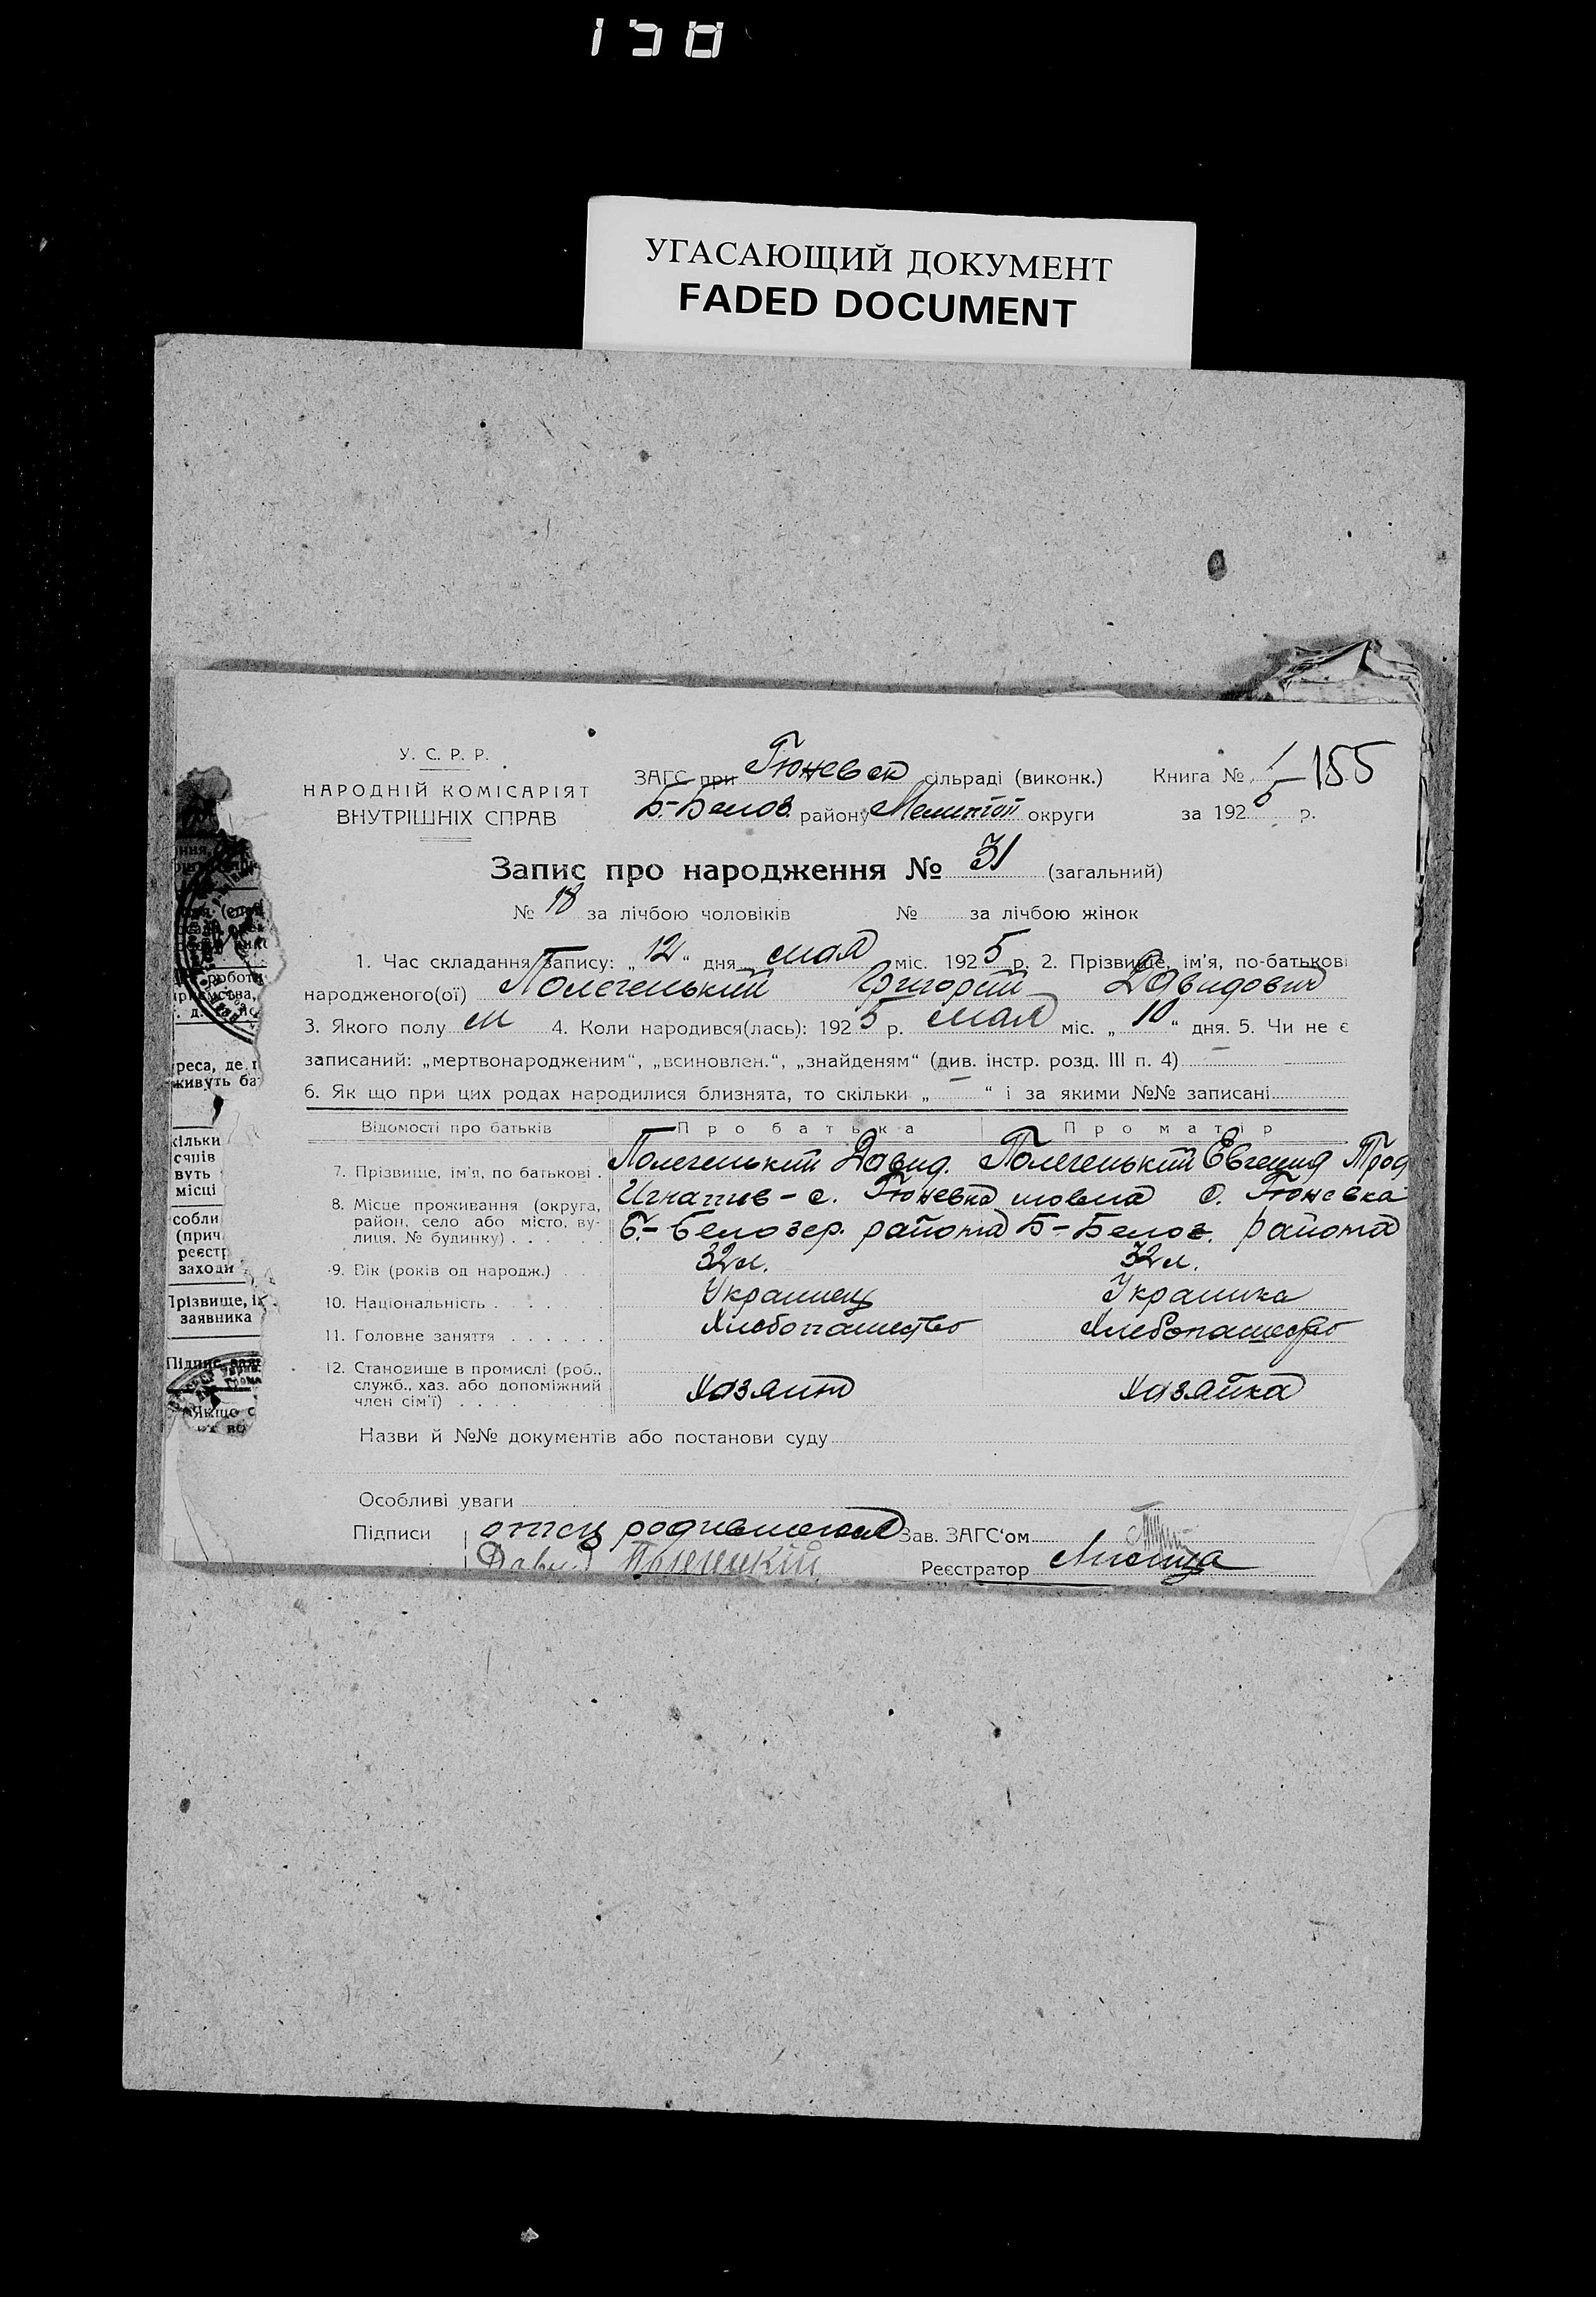 158
УГАСАЮЩИЙ ДОКУМЕНТ
FADED DOCUMENT
У. С. Р. Р.
НАРОДНІЙ КОМІСАРІЯТ
ВНУТРІШНІХ СПРАВ
ЗАГС при Гюневск сільраді (виконк.)
Б.-Белоз. району Мелитоп округи
Книга № 155
за 1925 р.
Запис про народження № 31 (загальний)
№ 18 за лічбою чоловіків № за лічбою жінок
1. Час складання запису: „12“ дня мая міс. 1925 р. 2. Прізвище, ім'я, по-батькові
народженого(ої) Полегенький Григорий Давидович
3. Якого полу м 4. Коли народився(лась): 1925 р. мая міс. „10“ дня. 5. Чи не є
записаний: „мертвонародженим“, „всиновлен.“, „знайденям“ (див. інстр. розд. III п. 4) —
6. Як що при цих родах народилися близнята, то скільки „ — “ і за якими №№ записані
Відомості про батьків Про батька Про матір
7. Прізвище, ім'я, по батькові . Полегенький Давид. Полегенький Евгения Трод
8. Місце проживання (округа, район, село або місто, вулиця, № будинку) . . . Игнатив - с. Гюневка с. Гюневка
Б.-Белозер. района Б-Белоз. района
9. Вік (років од народж.) . . 32 л. 32 л.
10. Національність . . . . Украинец Украинка
11. Головне заняття . . . . . . Хлебопашество Хлебопашество
12. Становище в промислі (роб.,
служб., хаз. або допоміжний
член сім'ї) . . . . Хазяин Хазяйка
Назви й №№ документів або постанови суду
Особливі уваги
Підписи отец родившегося Зав. ЗАГС'ом
Давид Реєстратор Лисица
реса, де п
живуть ба
кільки
сяців
вуть
місці
собли
(прич.
реєстр
заходи
Прізвище, ім
заявника
Якщо с